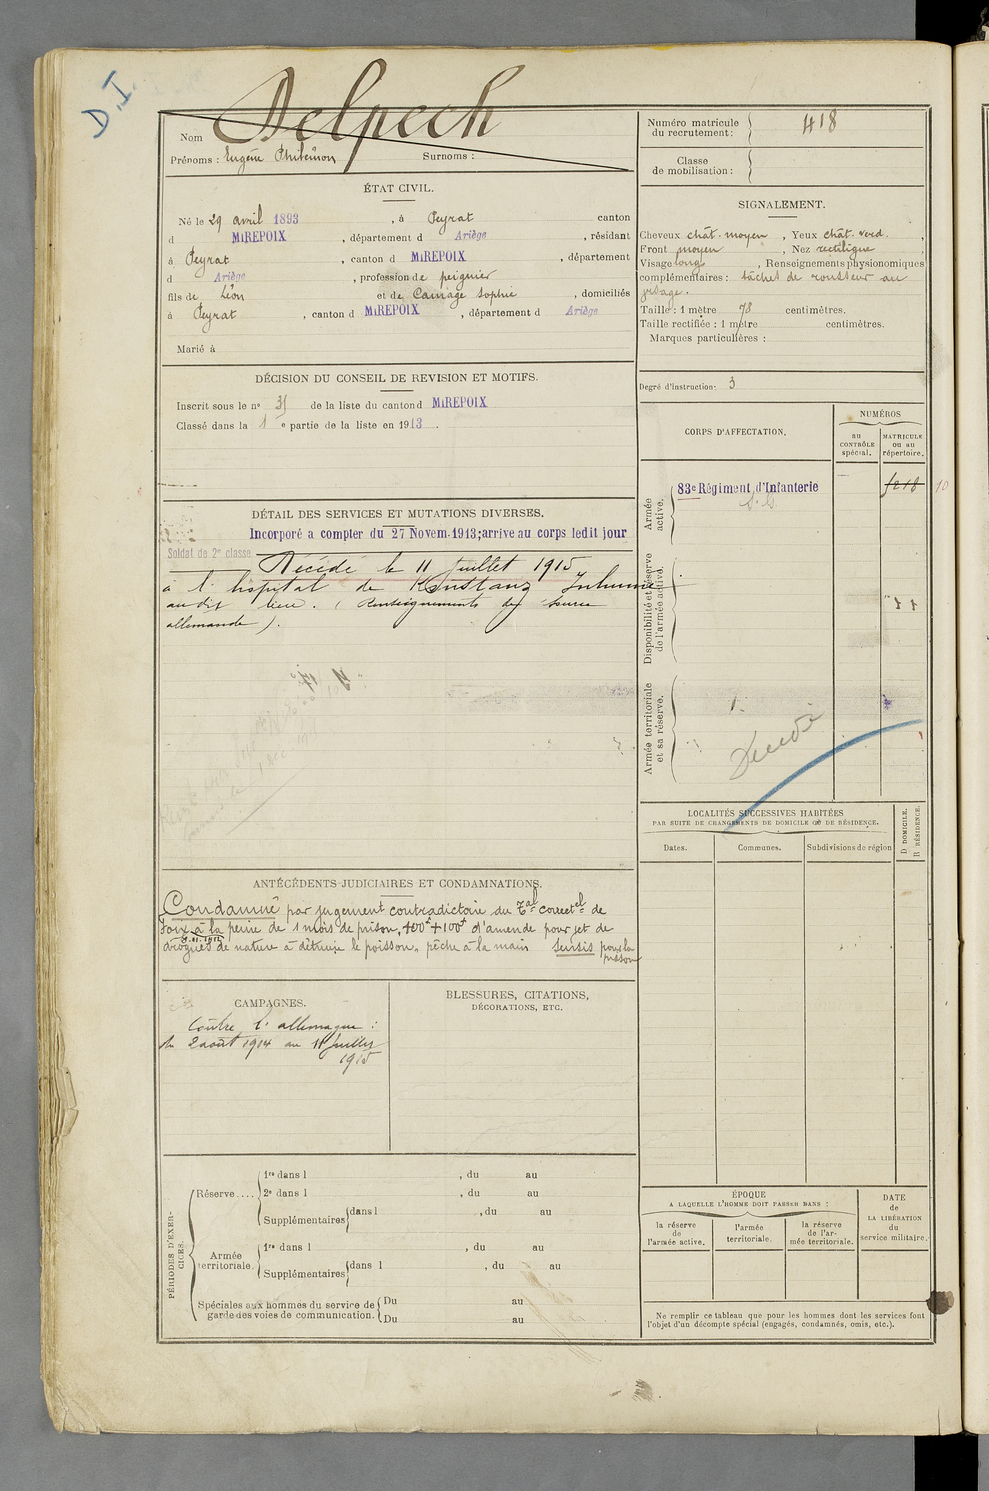 D.I.
Nom Delpech
Prénoms : Eugène Philémon Surnoms :
ÉTAT CIVIL.
Né le 29 avril 1893 , à Peyrat canton
d MIREPOIX , département d Ariège , résidant
à Peyrat , canton d MIREPOIX , département
d Ariège , profession de peignier
fils de Léon et de Camage Sophie , domiciliés
à Peyrat , canton d MIREPOIX , département d Ariège
Marié à
DÉCISION DU CONSEIL DE REVISION ET MOTIFS.
Inscrit sous le no 35 de la liste du canton d MIREPOIX
Classé dans la 1 e partie de la liste en 1913 .
DÉTAIL DES SERVICES ET MUTATIONS DIVERSES.
Incorporé a compter du 27 Novem. 1913; arrive au corps ledit jour
Soldat de 2e classe
Décédé le 11 Juillet 1915
à l'hôpital de Konstanz Inhumé
au dit lieu. (Renseignements de source
allemande).
ANTÉCÉDENTS JUDICIAIRES ET CONDAMNATIONS.
Condamné par jugement contradictoire du Tal correctel de
Foix à la peine de 1 mois de prison, 100f + 100f d'amende pour jet de
drogues de nature à détruire le poisson, pêche à la main Sursis pour la
prison
CAMPAGNES.
Contre l'allemagne :
du 2 août 1914 au 11 Juillet
1915
BLESSURES, CITATIONS,
DÉCORATIONS, ETC.
PÉRIODES D'EXERCICES.
Réserve....
1re dans l , du au
2e dans l , du au
Supplémentaires dans l , du au
Armée
territoriale.
1re dans l , du au
Supplémentaires dans l , du au
Spéciales aux hommes du service de
garde des voies de communication.
Du au
Du au
Numéro matricule
du recrutement : 418
Classe
de mobilisation :
SIGNALEMENT.
Cheveux chât. moyen , Yeux chât. verd. ,
Front moyen , Nez rectiligne ,
Visage long , Renseignements physionomiques
complémentaires : tâches de rousseur au
visage.
Taille : 1 mètre 78 centimètres.
Taille rectifiée : 1 mètre centimètres.
Marques particulières :
Degré d'instruction : 3
CORPS D'AFFECTATION.
NUMÉROS
au
CONTRÔLE
spécial.
MATRICULE
ou au
répertoire.
Armée
active.
83e Régiment d'Infanterie
Disponibilité et réserve
de l'armée active.
Armée territoriale
et sa réserve.
Décédé
LOCALITÉS SUCCESSIVES HABITÉES
PAR SUITE DE CHANGEMENTS DE DOMICILE OU DE RÉSIDENCE.
Dates.
Communes.
Subdivisions de région
D DOMICILE.
R RÉSIDENCE.
ÉPOQUE
A LAQUELLE L'HOMME DOIT PASSER DANS :
la réserve
de
l'armée active.
l'armée
territoriale.
la réserve
de l'ar-
mée territoriale.
DATE
de
LA LIBÉRATION
du
service militaire.
Ne remplir ce tableau que pour les hommes dont les services font
l'objet d'un décompte spécial (engagés, condamnés, omis, etc.).